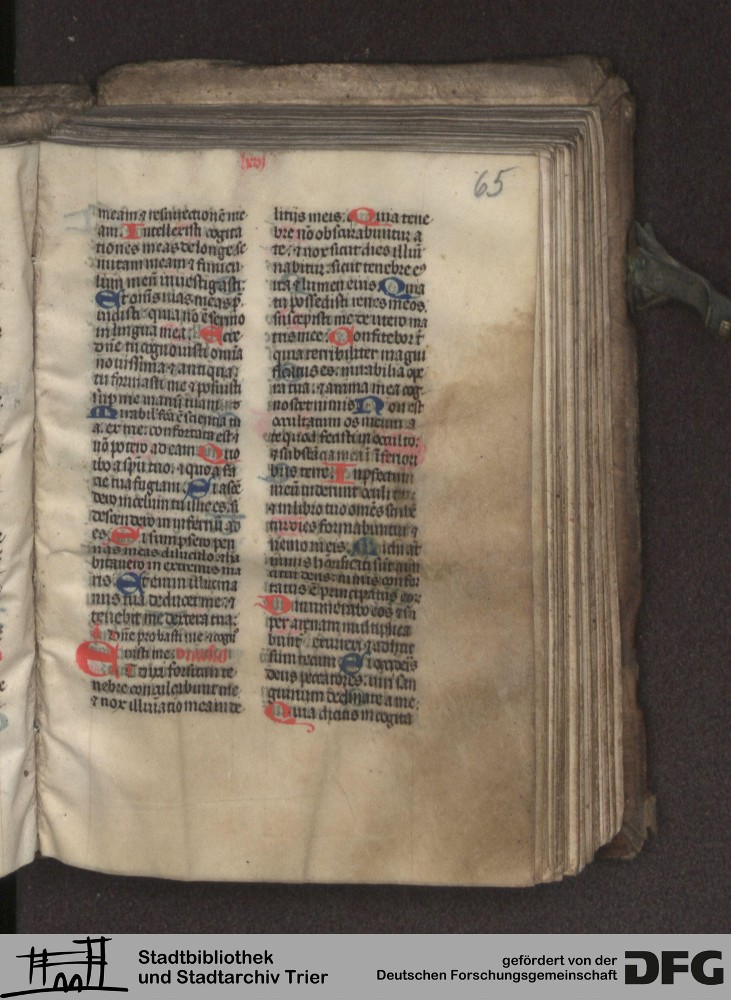 lxvj
65
meam ⁊ resurrectionē me
am. Intellexisti cogita
tiones meas de longe: se
mitam meam ⁊ funicu
lum meū inuestigasti:
Et om̄s uias meas p̄
uidisti: quia nō ē sermo
in lingua mea. Ecce
dn̄e tu cognouisti omīa
nouissima ⁊ antiqua:
tu formasti me ⁊ posuisti
sup me manū tuam.
Mirabil' fc̄a ē sciencia tu
a. ex me: confortata est ⁊
nō potero ad eam. Quo
ibo a spū tuo: ⁊ quo a fa
cie tua fugiam. Si ascē
dero in celum tu illic es: si
descendero in infernū ad
es. Si sumpsero pen
nas meas diluculo: ⁊ ha
bitauero in extremis ma
ris. Etenim illuc ma
nus tua deducet me: ⁊
tenebit me dextera tua:
Dn̄e probasti me ⁊ cogn̄
uisti me:
Et dixi forsitan te
nebre conculcabunt me
⁊ nox illuīatio mea in de
litijs meis. Quia tene
bre nō obscurabuntur a
te: ⁊ nox sicut dies illūi
nabitur: sicut tenebre eꝰ
ita ⁊ lumen eius. Quia
tu possedisti renes meos:
suscepisti me de utero ma
tris mee. Confitebor t̄
quia terribiliter magni
ficatus es: mirabilia ope
ra tua: ⁊ anima mea cog
noscet nimis. Non est
occultatum os meum a
te quod fecisti in occulto:
⁊ substācia mea ī īferiori
bus terre. Inpfectum
meū uiderunt oculi tui:
⁊ in libro tuo om̄es scribē
tur: dies formabuntur ⁊
nemo in eis. Michi aūt
nimis honorati sūt ami
ci tui deus: nimis confor
tatus ē principatus eoꝝ.
Dinumerabo eos ⁊ su
per arenam multiplica
buntur: exurrexi ⁊ adhuc
sum tecum. Si occideris
deus peccatores: uiri san
guinum declinate a me:
Quia dicitis in cogita
Stadtbibliothek
und Stadtarchiv Trier
gefördert von der
Deutschen Forschungsgemeinschaft
DFG